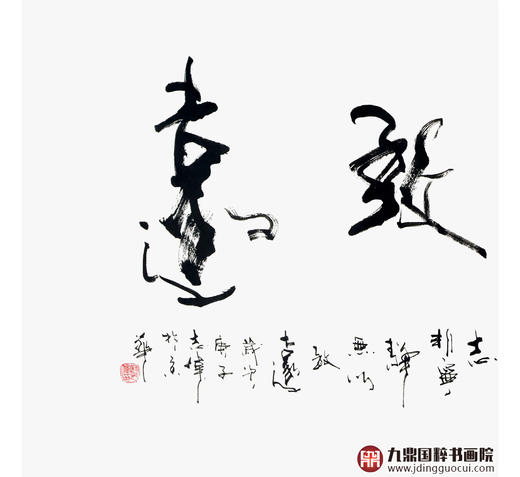 致
遠
志
非寧
靜
無以
致
遠
庚子
於京
華
九鼎国粹书画院
www.jdingguocui.com